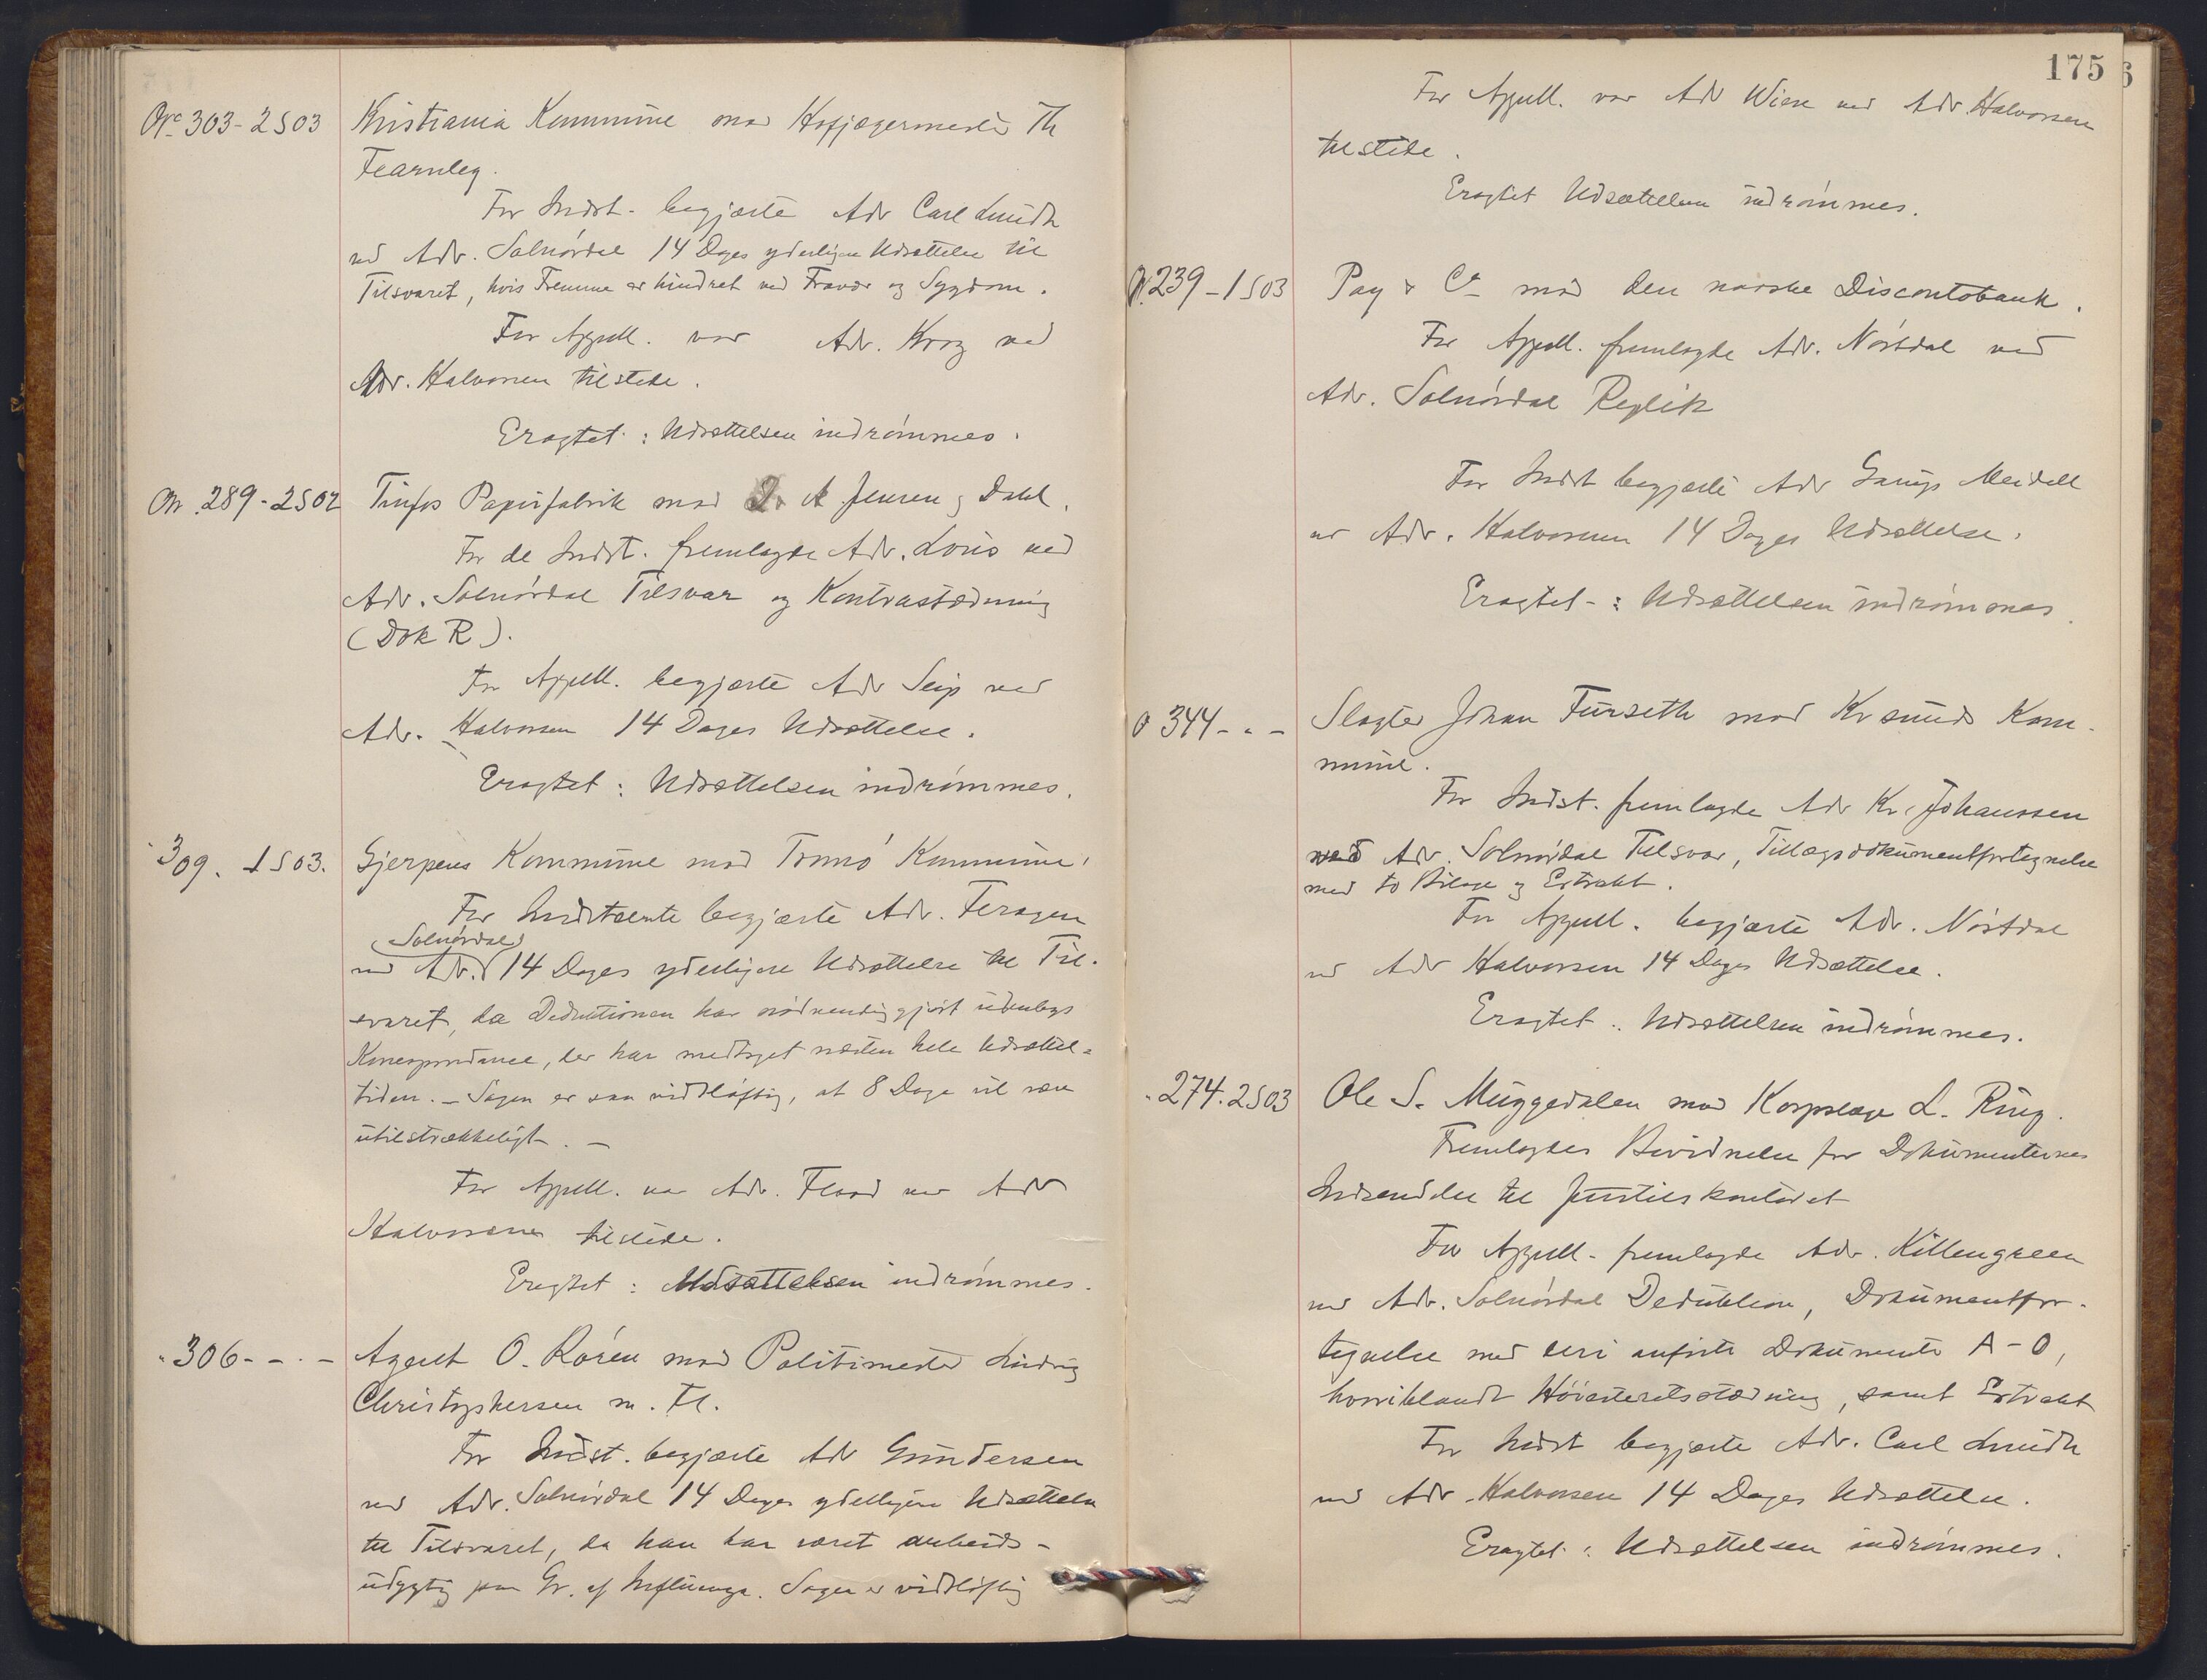 No 303-2S03 Kristiania Kommune mod Hofjægermester Th
Fearnley.
For Indst. begjærte Adv Carl Lundh
ved Adv. Solnørdal 14 Dages yderligere Udsættelse til
Tilsvaret, hvis Fremme er hindret ved Fravær og Sygdom.
For Appell. var Adv. Krag ved
Adv. Halvorsen tilstede.
Eragtet: Udsættelsen indrømmes.
No. 289-2S02 Tinfos Papirfabrik mod A Jensen & Dahl.
For de Indst. fremlagde Adv. Lous ved
Adv. Solnørdal Tilsvar og Kontrastævning
(Dok R).
For Appell. begjærte Adv Seip ved
Adv. Halvorsen 14 Dages Udsættelse.
Eragtet: Udsættelsen indrømmes.
309. 1S03. Gjerpens Kommune mod Tromø Kommune.
For Indstævnte begjærte Adv. Feragen
(Solnørdal)
ved Adv. 14 Dages yderligere Udsættelse til Til-
svaret, da Deduktionen har nødvendiggjort udenbys
Korrespondance, der har medtaget næsten hele Udsættel-
tiden. – Sagen er saa vidtløftig, at 8 Dage vil være
utilstrækkeligt. –
For Appell. var Adv. Flood ved Adv
Halvorsen tilstede.
Eragtet: Udsættelsen indrømmes.
" 306 - - " - Agent O. Rosén mod Politimester Ludvig
Christophersen m. Fl.
For Indst. begjærte Adv Gundersen
ved Adv. Solnørdal 14 Dages yderligere Udsættelse
til Tilsvaret, da han har været arbeids-
udygtig paa Gr. af Influenza. Sagen er vidtløftig
175
For Appell. var Adv Wiese ved Adv. Halvorsen
tilstede.
Eragtet Udsættelsen indrømmes.
No. 239-1S03 Pay & Co mod den norske Discontobank.
For Appell. fremlagde Adv. Nørstdal ved
Adv. Solnørdal Replik
For Indst begjærte Adv Meidell
ved Adv. Halvorsen 14 Dages Udsættelse.
Eragtet -: Udsættelsen indrømmes.
O 344 - " - Slagter Johan Furseth mod Krsunds Kom-
mune.
For Indst. fremlagde Adv Kr. Johanssen
ved Adv. Solnørdal Tilsvar, Tillægsdokumentfortegnelse
med to Bilage og Extrakt.
For Appell. begjærte Adv. Nørstdal
ved Adv Halvorsen 14 Dages Udsættelse.
Eragtet: Udsættelsen indrømmes.
" 274. 2S03 Ole S. Muggedalen mod Korpslæge L. Ring.
Fremlagdes Bevidnelse for Dokumenternes
Indsendelse til Justitskontoret
For Appell. fremlagde Adv. Killengreen
ved Adv. Solnørdal Deduktion, Dokumentfor-
tegnelse med deri anførte Dokumenter A-O,
hvoriblandt Høiesteretsstævning, samt Extrakt
For Indst begjærte Adv. Carl Lundh
ved Adv. Halvorsen 14 Dages Udsættelse.
Eragtet: Udsættelsen indrømmes.